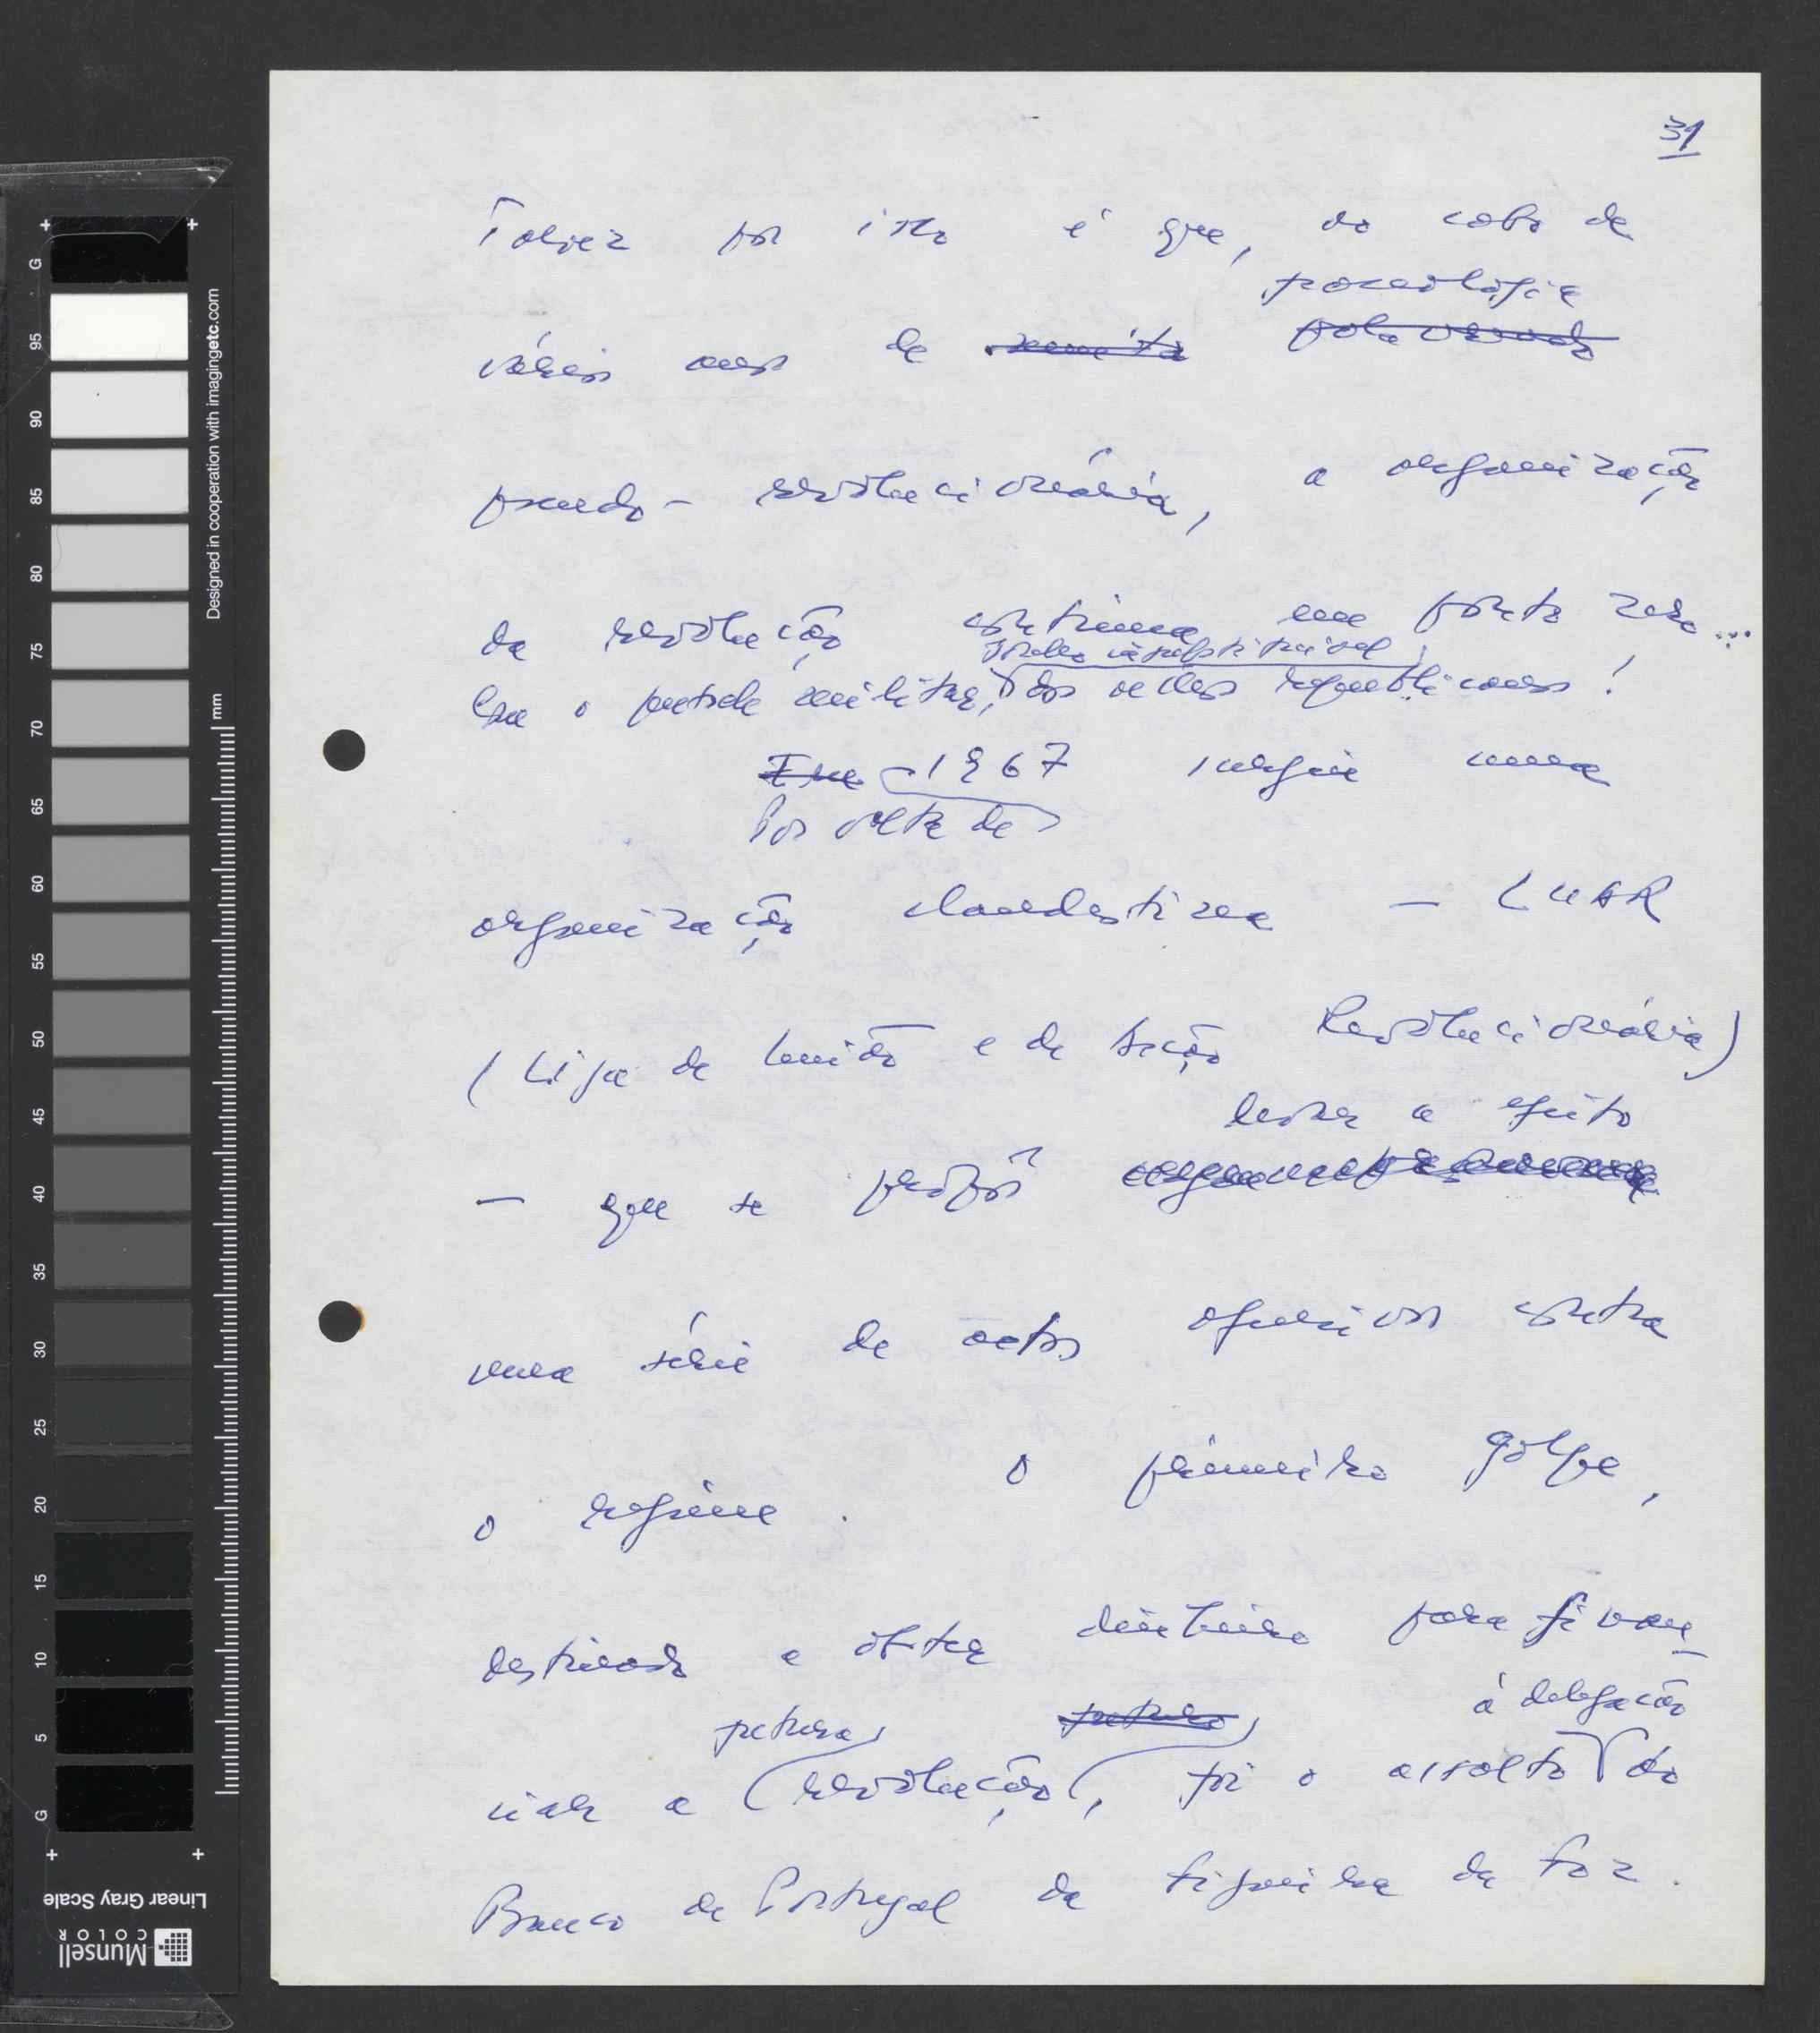 31
Talvez por isso é que, ao cabo de
parcologia
vários anos de muita palavreado
pseudo-revolucionária, a organização
da revolução continua em ponto zero...
Era o putsch militar, dos velhos republicanos!
Em 1967 surgiu uma
Por volta de
organização clandestina — LUAR
(Liga de União e de Acção Revolucionária)
levar a efeito
— que se propôs
uma série de actos ofensivos contra
o regime. O primeiro golpe,
destinado a obter dinheiro para finan-
à delegação
futura futuro
ciar a revolução, foi o assalto do
Banco de Portugal da Figueira da Foz.
G 95 90 85 80 75 70 65 60 55 50 45 40 35 30 25 20 15 10 5 G
Designed in cooperation with imagingetc.com
mm
Linear Gray Scale
Munsell
COLOR